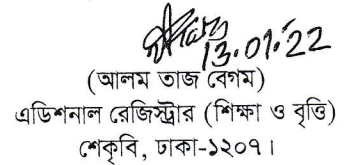 13.01.22
(আলম তাজ বেগম)
এডিশনাল রেজিস্ট্রার (শিক্ষা ও বৃত্তি)
শেকৃবি, ঢাকা-১২০৭।